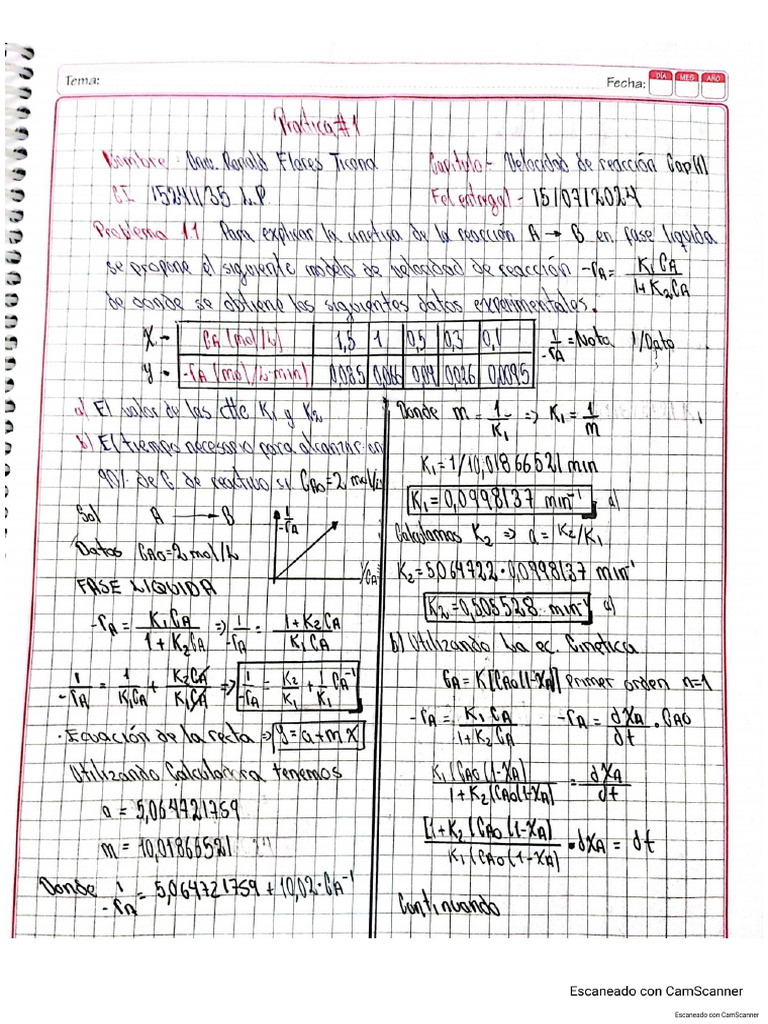 Tema:
Fecha: DÍA MES AÑO
Practica #1
Nombre: Univ. Ronald Flores Ticona
CI 15241135 L.P.
Capitulo - Velocidad de reacción Cap(1)
Fe entrega - 15/07/2024
Problema 1.1 Para explicar la cinetica de la reacción A → B en fase liquida
se propone el siguiente modelo de velocidad de reacción -rA = K1CA / 1+K2CA
de donde se obtiene los siguientes datos experimentales.
X - CA (mol/L) 1,5 1 0,5 0,3 0,1
y - -rA (mol/L·min) 0,085 0,066 0,04 0,026 0,0095
1/-rA = Nota 1/Dato
a) El valor de las ctte K1 y K2
b) El tiempo necesario para alcanzar un
90% de de reactivo si CA0=2 mol/L
Sol A → B
Datos CA0=2 mol/L
FASE LIQUIDA
1/-rA
1/CA
-rA = K1CA / 1+K2CA => 1/-rA = 1+K2CA / K1CA
1/-rA = 1/K1CA + K2CA/K1CA => 1/-rA = K2/K1 + 1/K1 CA⁻¹
· Ecuación de la recta => y = a+m.x
Utilizando Calculadora tenemos
a = 5,064721759
m = 10,01866521
Donde 1/-rA = 5,064721759 + 10,02·CA⁻¹
Donde m = 1/K1 => K1 = 1/m
K1 = 1/10,01866521 min
K1 = 0,0998137 min⁻¹ a)
Calculamos K2 => a = K2/K1
K2 = 5,064722·0,0998137 min⁻¹
K2 = 0,505528 min⁻¹ a)
b) Utilizando La ec. Cinetica
CA = K[CA0(1-XA)] primer orden n=1
-rA = K1CA / 1+K2CA -rA = dXA/dt · CA0
K1(CA0(1-XA) / 1+K2(CA0(1-XA) = dXA/dt
[1+K2(CA0(1-XA) / K1(CA0(1-XA) · dXA = dt
Continuando
Escaneado con CamScanner
Escaneado con CamScanner